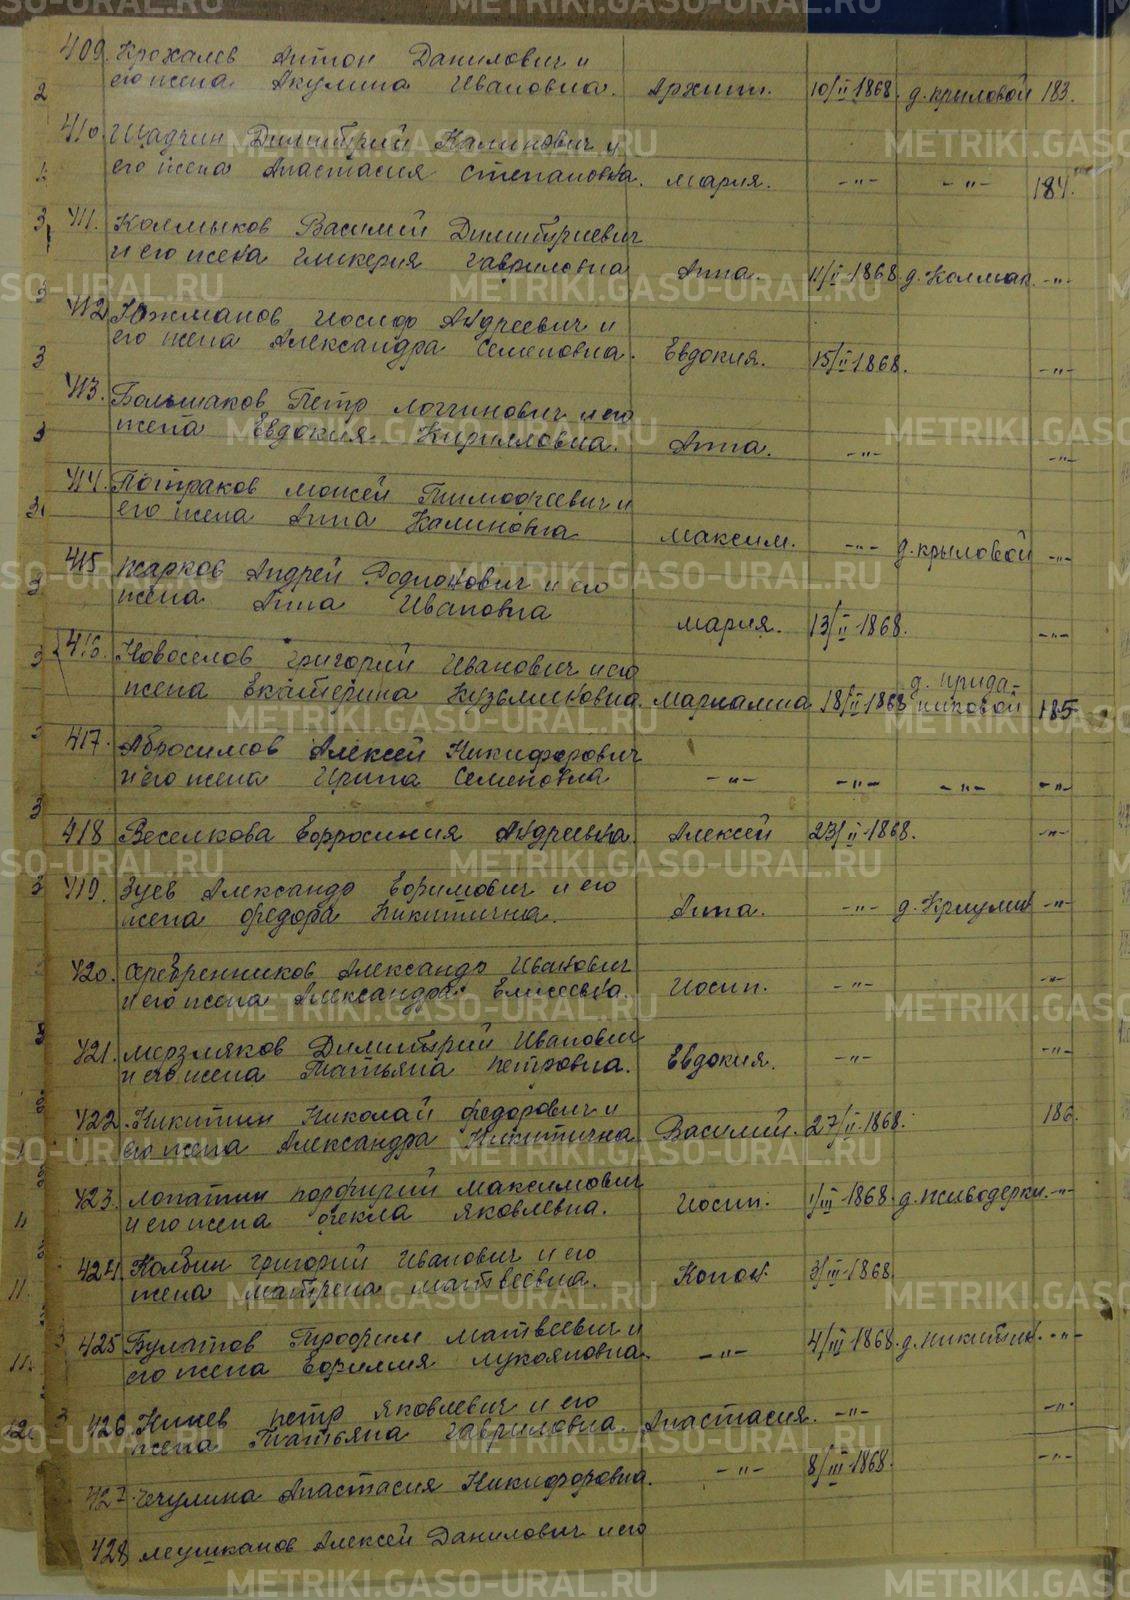 409. Крохалев Антон Данилович и
его жена Акулина Ивановна. Архип. 10/II 1868. д. Крыловой 183.
410. Щадчин Димитрий Калинович и
его жена Анастасия Степановна. Мария. -"- -"- 184.
411. Колмыков Василий Димитриевич
и его жена Гликерия Гавриловна Анна. 11/II 1868. д. Колмак. -"-
412. Южманов Иосиф Андреевич и
его жена Александра Семеновна. Евдокия. 15/II 1868. -"-
413. Большаков Петр Логгинович и его
жена Евдокия Кирилловна. Анна. -"- -"-
414. Потраков Моисей Тимофеевич и
его жена Анна Калиновна Максим. -"- д. Крыловой -"-
415 Жарков Андрей Родионович и его
жена Анна Ивановна Мария. 13/II 1868. -"-
416. Новоселов Григорий Иванович и его
жена Екатерина Кузьминовна. Мариамна 18/II 1868 д. Прида-
никовой 185.
417. Абросимов Алексей Никифорович
и его жена Ирина Семеновна -"- -"- -"- -"-
418 Веселкова Ефросиния Андреевна. Алексей 23/II 1868. -"-
419. Зуев Александр Ефимович и его
жена Федора Никитична. Анна. -"- -"-
420. Серебренников Александр Иванович
и его жена Александра Елисеевна. Иосип. -"- -"-
421. Мерзляков Димитрий Иванович
и его жена Татьяна Петровна. Евдокия. -"- -"-
422. Никитин Николай Федорович и
его жена Александра Никитична Василий. 27/II 1868. 186.
423. Лопатин Порфирий Максимович
и его жена Фекла Яковлевна. Иосип. 1/III 1868 д. Живодерки. -"-
424. Колбин Григорий Иванович и его
жена Матрена Матвеевна. Конон. 3/III 1868.
425 Булатов Трофим Матвеевич и
его жена Ефимия Лукояновна. -"- 4/III 1868. д. Никитин. -"-
426. Петр Яковлевич и его
жена Татьяна Гавриловна. Анастасия. -"- -"-
427. Чечулина Анастасия Никифоровна. -"- 8/III 1868. -"-
428. Меушканов Алексей Данилович и его
METRIKI.GASO-URAL.RU